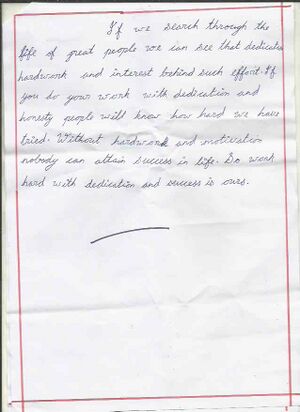 If we search through the
life of great people we can see that dedicated
hardwork and interest behind such effort. If
you do your work with dedication and
honesty people will know how hard we have
tried. Without hardwork and motivation
nobody can attain success in life. Do work
hard with dedication and success is ours.